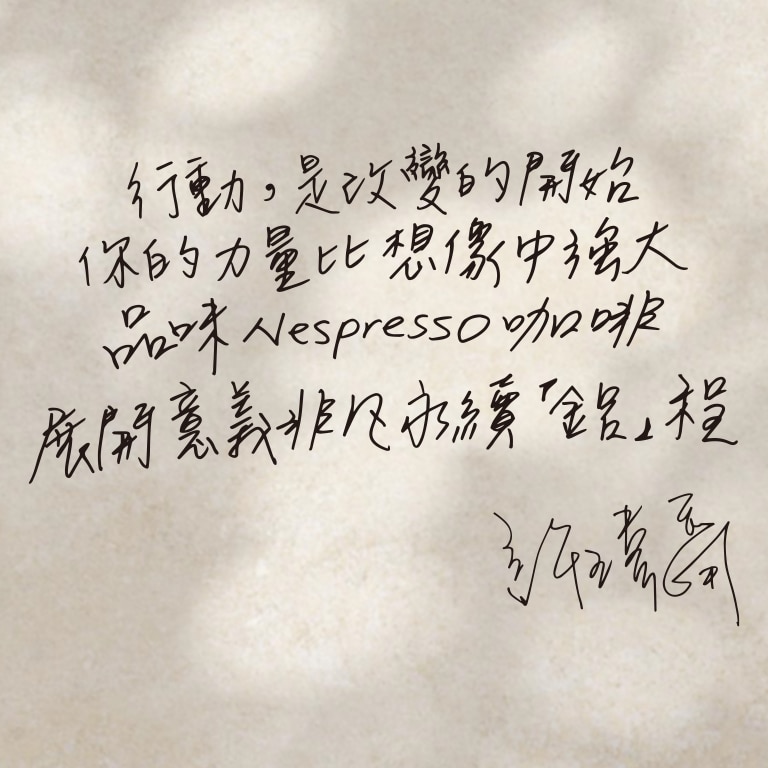 行動，是改變的開始
你的力量比想像中強大
品味 Nespresso 咖啡
展開意義非凡永續「鋁」程
許瑋甯